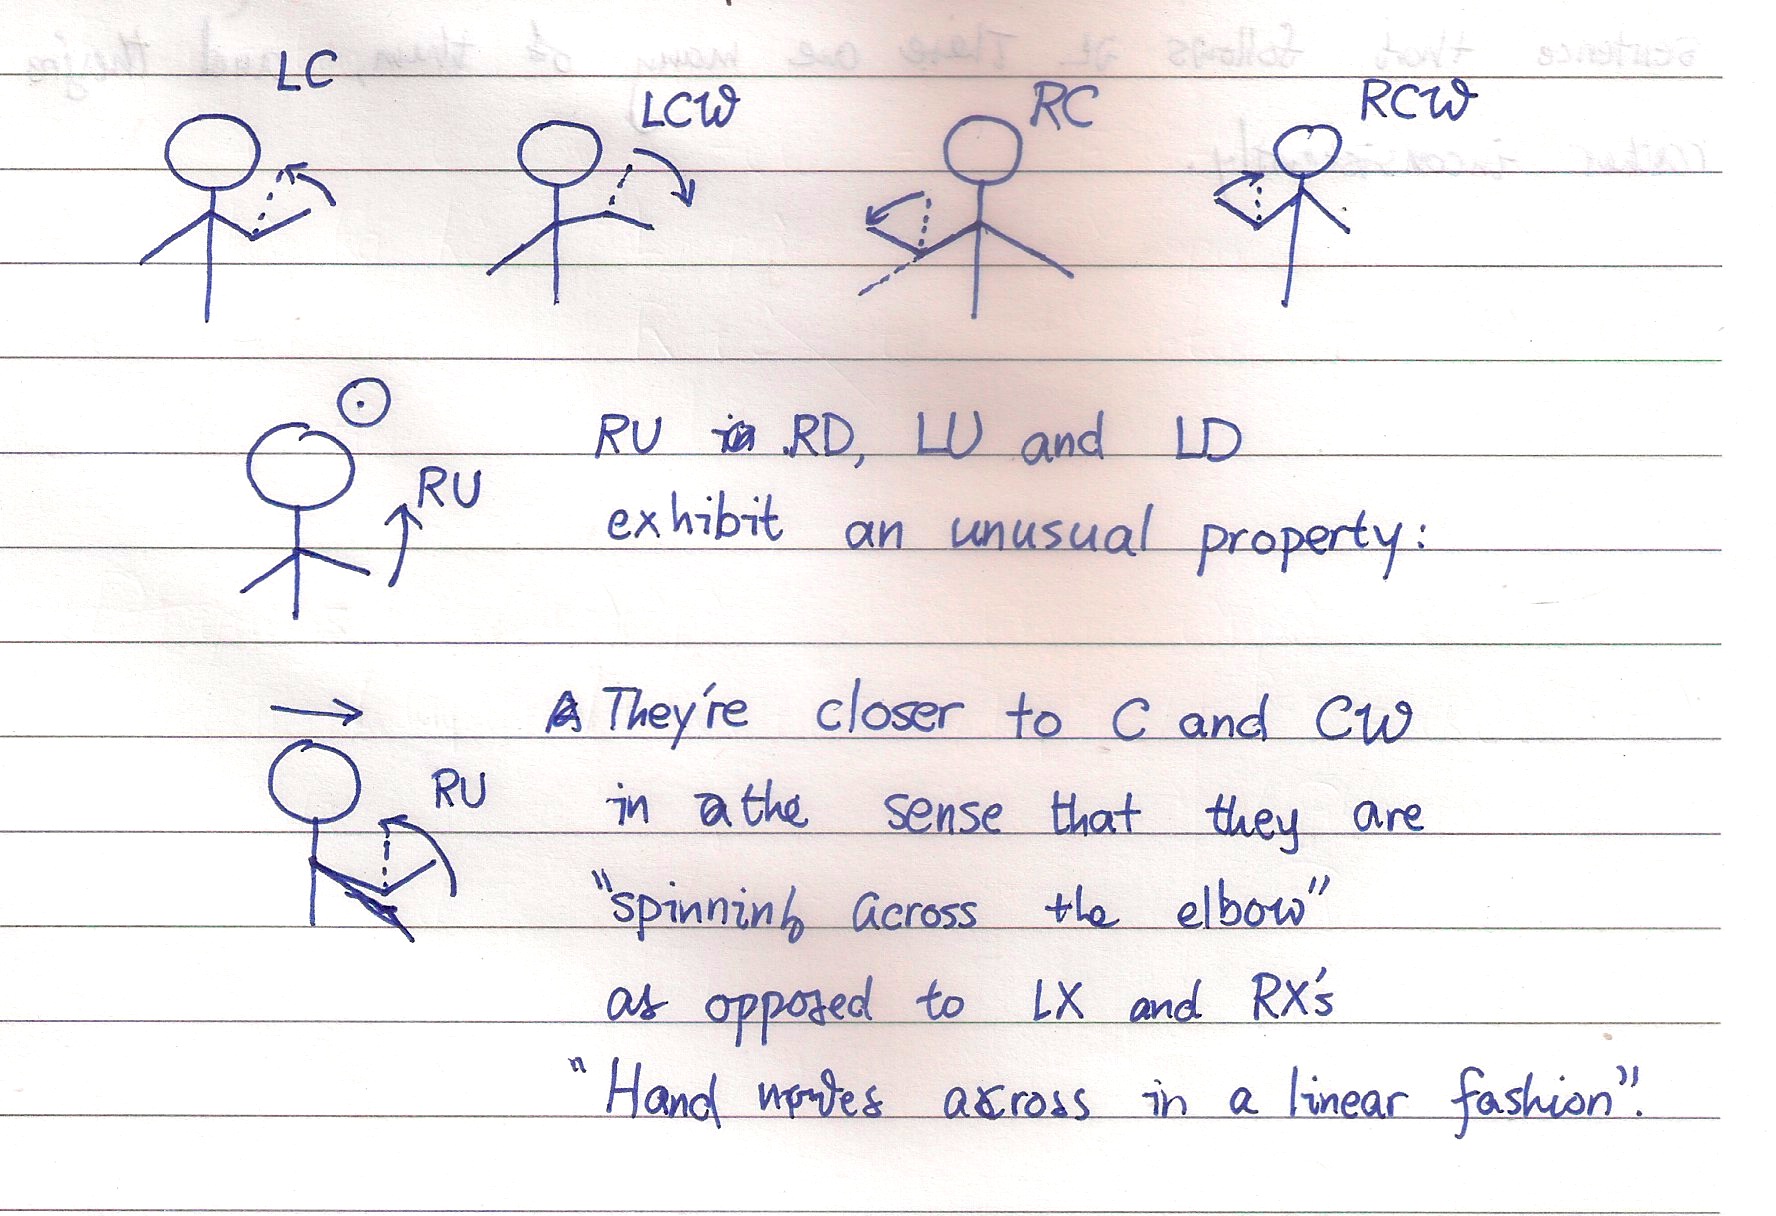 LC
LCW
RC
RCW
RU
RU RD, LU and LD
exhibit an unusual property:
They're closer to C and CW
RU
in the sense that they are
"spinning across the elbow"
as opposed to LX and RX's
"Hand moves across in a linear fashion".